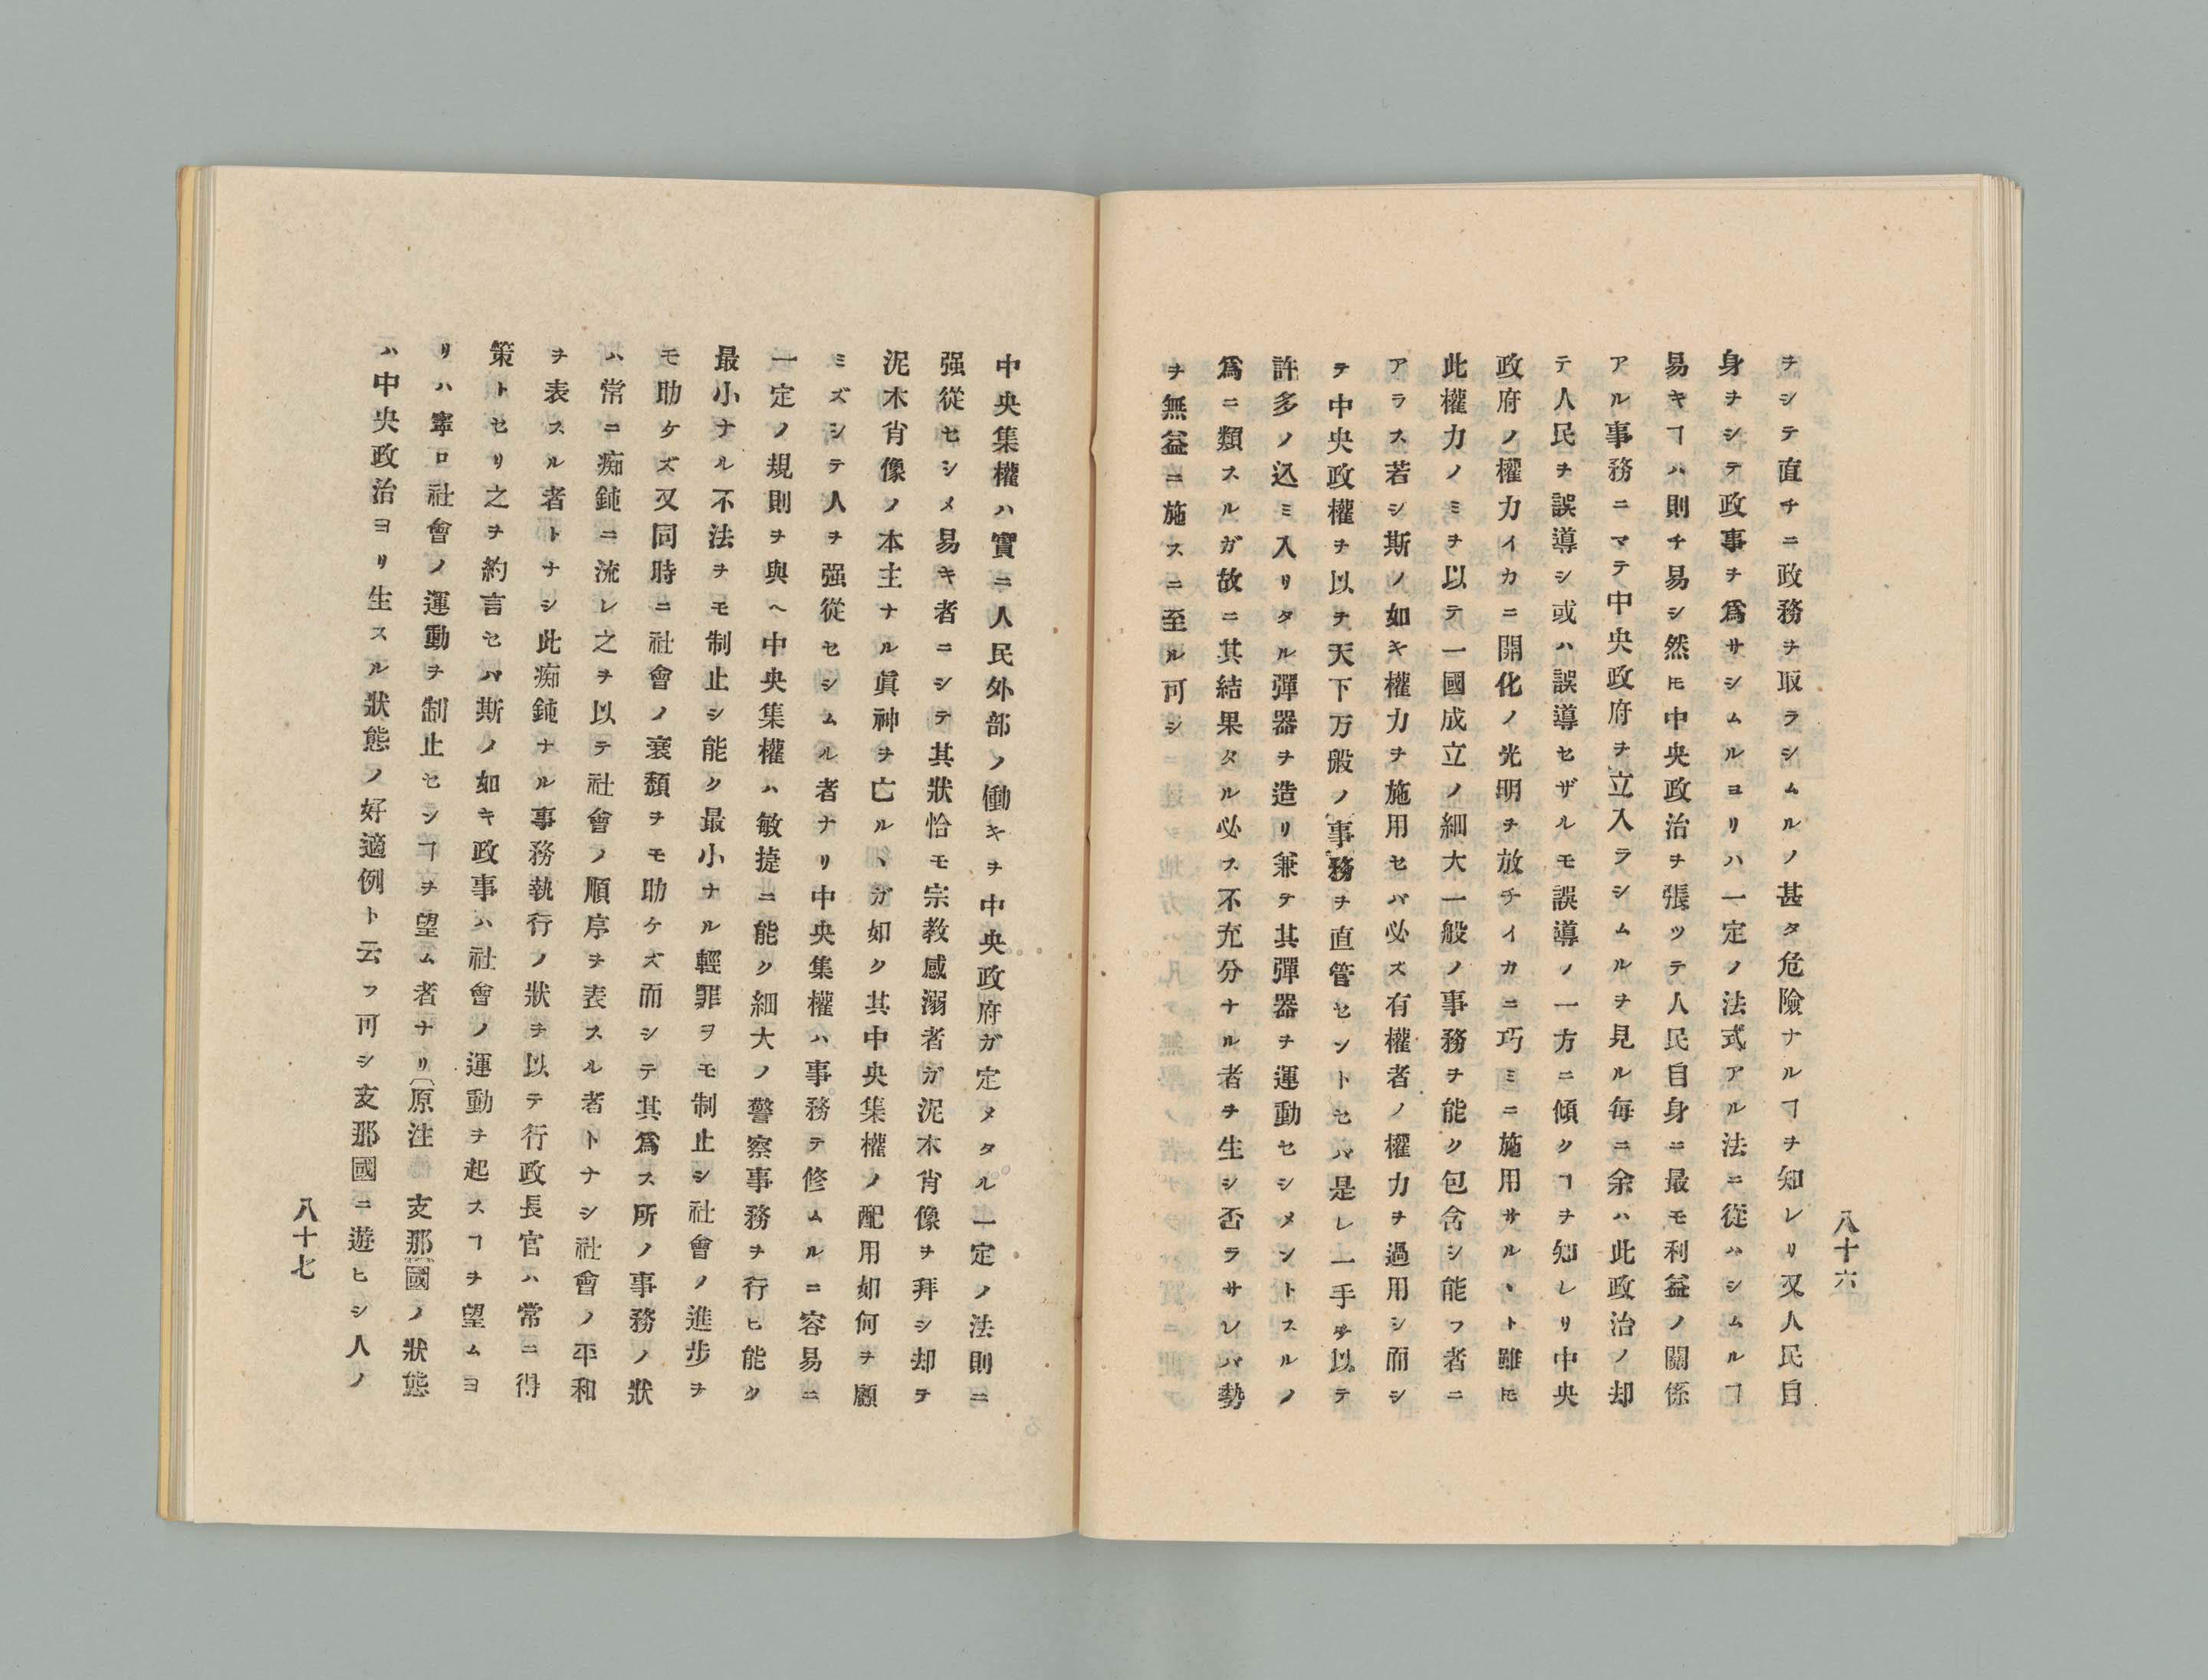 八十六
ヲシテ直チニ政務ヲ取ラシムルノ甚タ危險ナルヿヲ知レリ又人民自
身ヲシテ政事ヲ爲サシムルヨリハ一定ノ法式アル法ニ從ハシムルヿ
易キヿハ則チ易シ然𪜈中央政治ヲ張ツテ人民自身ニ最モ利益ノ關係
アル事務ニマテ中央政府ヲ立入ラシムルヲ見ル毎ニ余ハ此政治ノ却
テ人民ヲ誤導シ或ハ誤導セザルモ誤導ノ一方ニ傾クヿヲ知レリ中央
政府ノ權力イカニ開化ノ光明ヲ放チイカニ巧ミニ施用サルヽト雖𪜈
此權力ノミヲ以テ一國成立ノ細大一般ノ事務ヲ能ク包含シ能フ者ニ
アラス若シ斯ノ如キ權力ヲ施用セバ必ズ有權者ノ權力ヲ過用シ而シ
テ中央政權ヲ以テ天下万般ノ事務ヲ直管セントセハ是レ一手ヲ以テ
許多ノ込ミ入リタル彈器ヲ造リ兼テ其彈器ヲ運動セシメントスルノ
爲ニ類スルガ故ニ其結果タル必ス不充分ナル者ヲ生シ否ラサレハ勢
ヲ無益ニ施スニ至ル可シ
中央集權ハ實ニ人民外部ノ働キヲ中央政府ガ定メタル一定ノ法則ニ
强從セシメ易キ者ニシテ其狀恰モ宗教感溺者ガ泥木肖像ヲ拜シ却テ
泥木肖像ノ本主ナル眞神ヲ亡ルヽガ如ク其中央集權ノ配用如何ヲ顧
ミズシテ人ヲ强從セシムル者ナリ中央集權ハ事務テ修ムルニ容易ニ
一定ノ規則ヲ與ヘ中央集權ハ敏捷ニ能ク細大ノ警察事務ヲ行ヒ能ク
最小ナル不法ヲモ制止シ能ク最小ナル輕罪ヲモ制止シ社會ノ進步ヲ
モ助ケズ又同時ニ社會ノ衰頽ヲモ助ケズ而シテ其爲ス所ノ事務ノ狀
ハ常ニ痴鈍ニ流レ之ヲ以テ社會ノ順序ヲ表スル者トナシ社會ノ平和
ヲ表スル者トナシ此痴鈍ナル事務執行ノ狀ヲ以テ行政長官ハ常ニ得
策トセリ之ヲ約言セハ斯ノ如キ政事ハ社會ノ運動ヲ起スヿヲ望ムヨ
リハ寧ロ社會ノ運動ヲ制止セシヿヲ望ム者ナリ〔原注 支那國ノ狀態
ハ中央政治ヨリ生スル狀態ノ好適例ト云フ可シ支那國ニ遊ヒシ人ノ
八十七